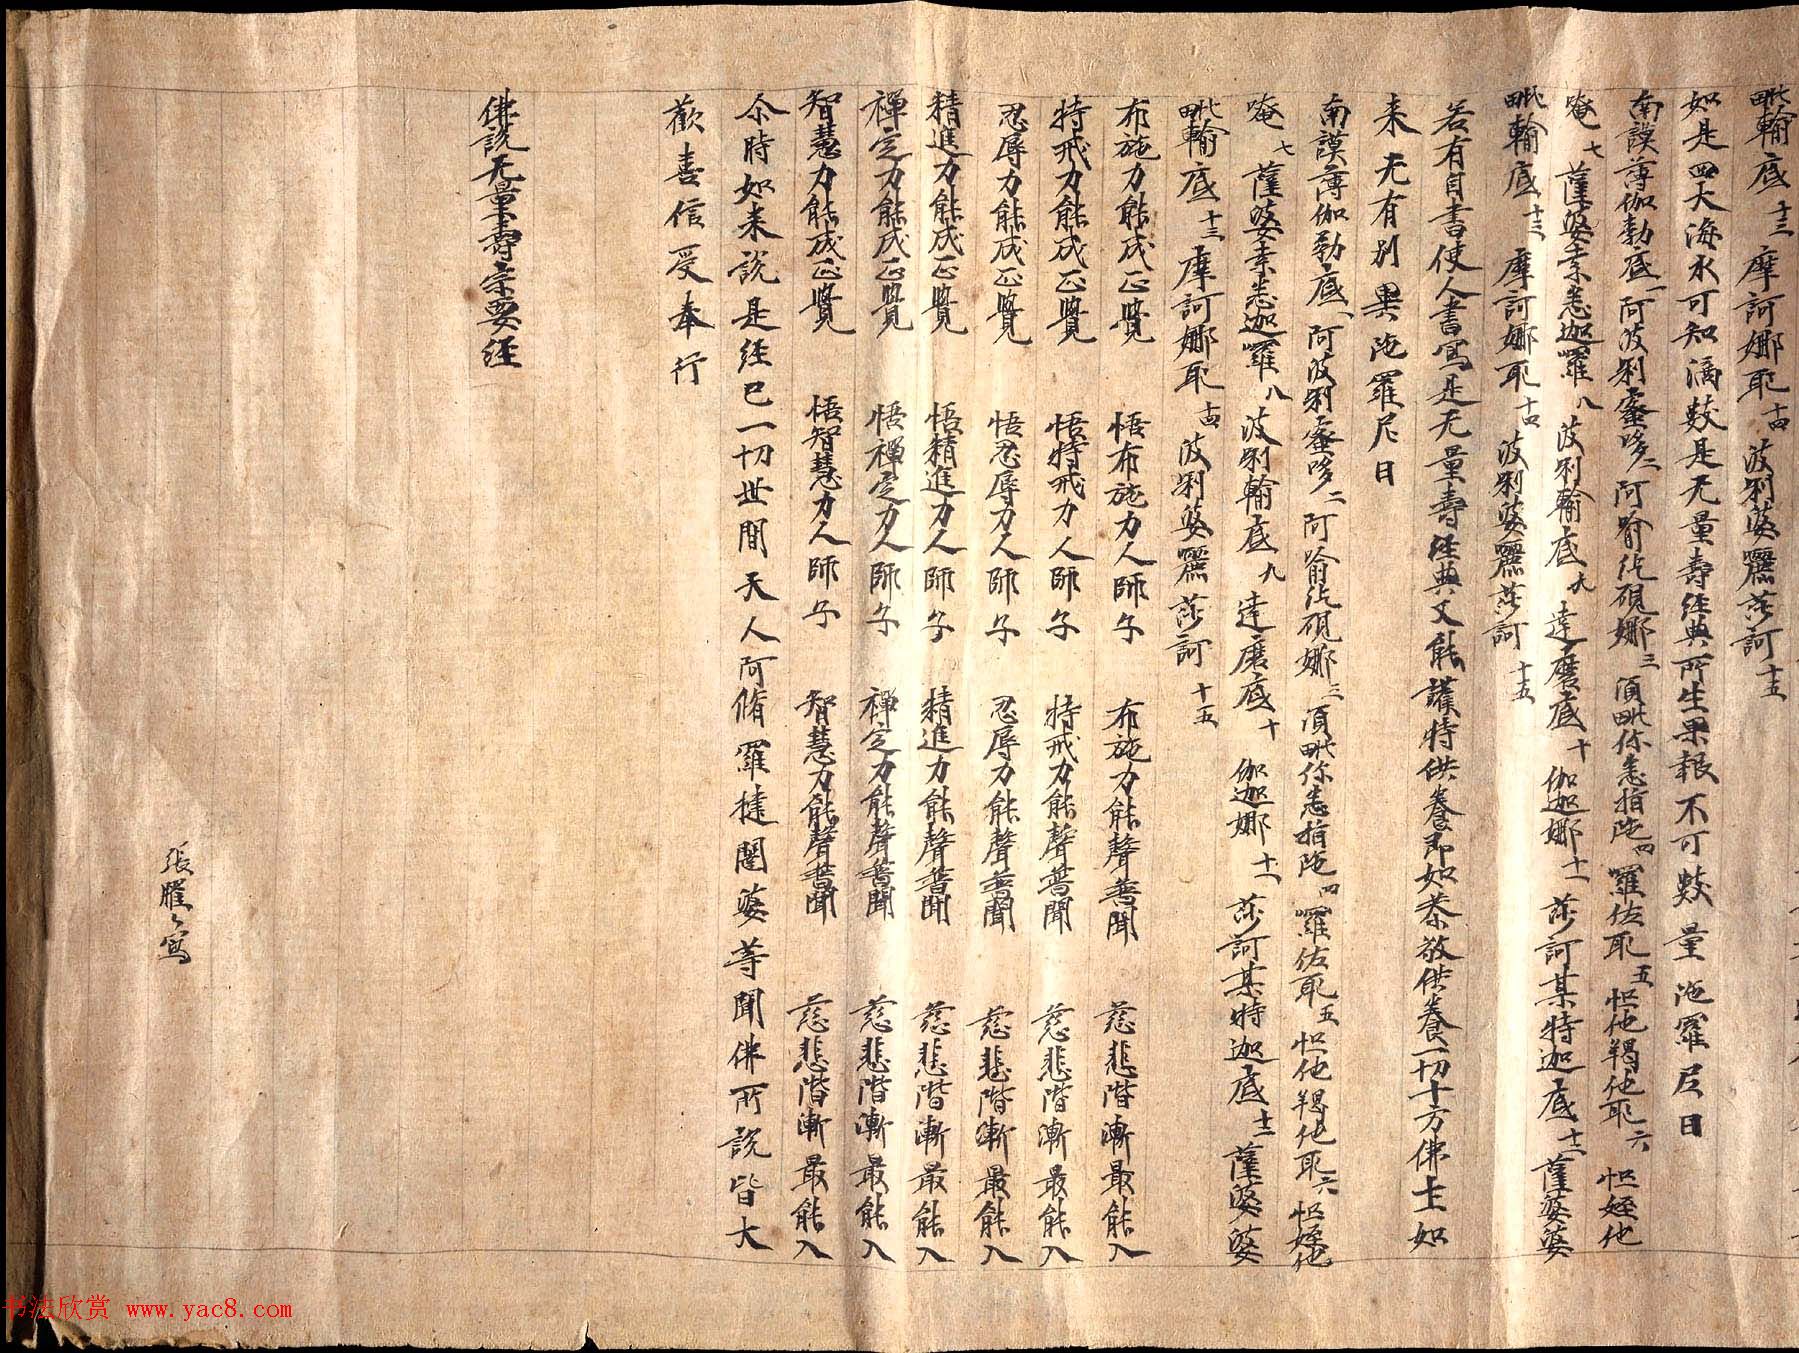 毗輸底十三 摩訶娜耶十四 波唎婆囇莎訶十五
如是四大海水可知滴數是无量壽經典所生果報不可數量 陁羅尼曰
南謨薄伽勃底一 阿波唎蜜哆二 阿喻紇硯娜三 湏毗你悉指陁四 囉佐耶五 怛他羯他耶六 怛姪他
唵七 薩婆桒悉迦羅八 波唎輸底九 達磨底十 伽迦娜十一 莎訶某特迦底十二 薩婆婆
毗輸底十三 摩訶娜耶十四 波唎婆囇莎訶十五
若有自書使人書寫是无量壽經典又能護持供養即如恭敬供養一切十方佛土如
来无有別異陁羅尼曰
南謨薄伽勃底一 阿波唎蜜哆二 阿喻紇硯娜三 湏毗你悉指陁四 囉佐耶五 怛他羯他耶六 怛姪他
唵七 薩婆桒悉迦羅八 波唎輸底九 達磨底十 伽迦娜十一 莎訶某特迦底十二 薩婆婆
毗輸底十三 摩訶娜耶十四 波唎婆囇莎訶十五
布施力能成正覺 悟布施力人師子 布施力能聲普聞 慈悲階漸最能入
持戒力能成正覺 悟持戒力人師子 持戒力能聲普聞 慈悲階漸最能入
忍辱力能成正覺 悟忍辱力人師子 忍辱力能聲普聞 慈悲階漸最能入
精進力能成正覺 悟精進力人師子 精進力能聲普聞 慈悲階漸最能入
禪定力能成正覺 悟禪定力人師子 禪定力能聲普聞 慈悲階漸最能入
智慧力能成正覺 悟智慧力人師子 智慧力能聲普聞 慈悲階漸最能入
尒時如来說是經已一切世間天人阿脩羅揵闥婆等聞佛所說皆大
歡喜信受奉行
佛說无量壽宗要經
張䑺〻寫
书法欣赏 www.yac8.com